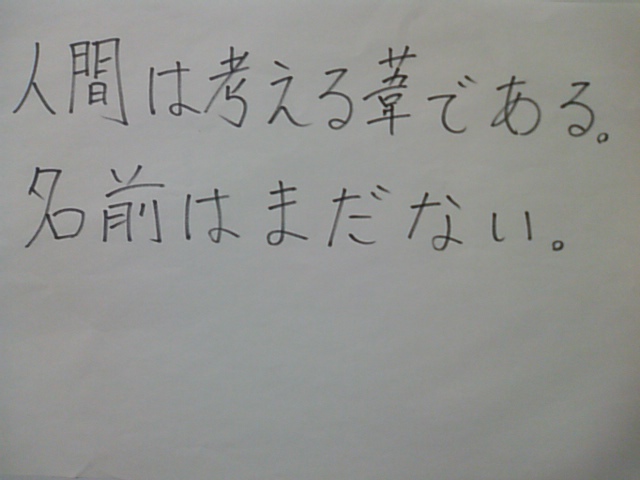 人間は考える葦である。
名前はまだない。